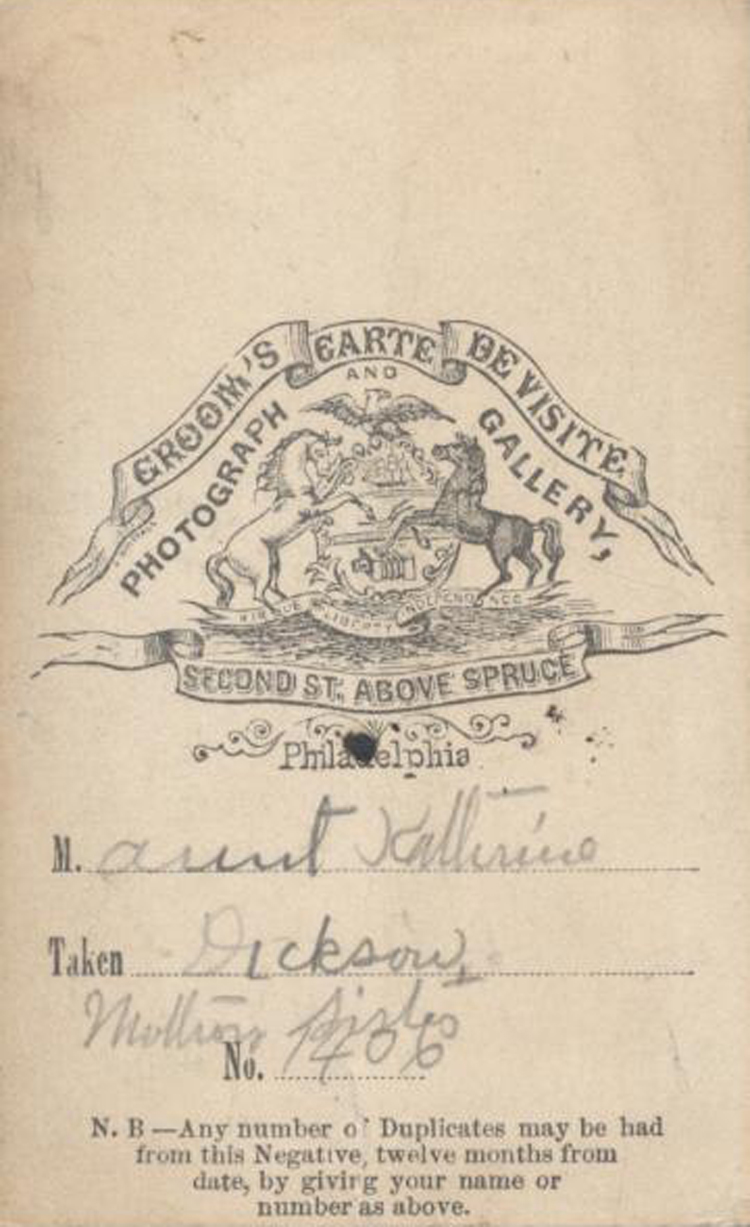 GROOM'S CARTE DE VISITE
AND
PHOTOGRAPH GALLERY,
VIRTUE LIBERTY INDEPENDENCE
SECOND ST, ABOVE SPRUCE
Philadelphia
M. aunt Katherine
Taken Dickson,
Mothers Sister
No. 1406
N. B —Any number of Duplicates may be had
from this Negative, twelve months from
date, by giving your name or
number as above.